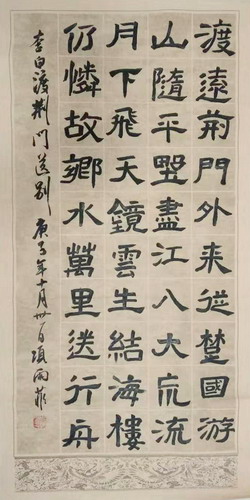 渡遠荊門外来從楚國游
山隨平野盡江入大荒流
月下飛天鏡雲生結海樓
仍憐故鄉水萬里送行舟
李白渡荊門送別 庚子年十月卅日項雨菲